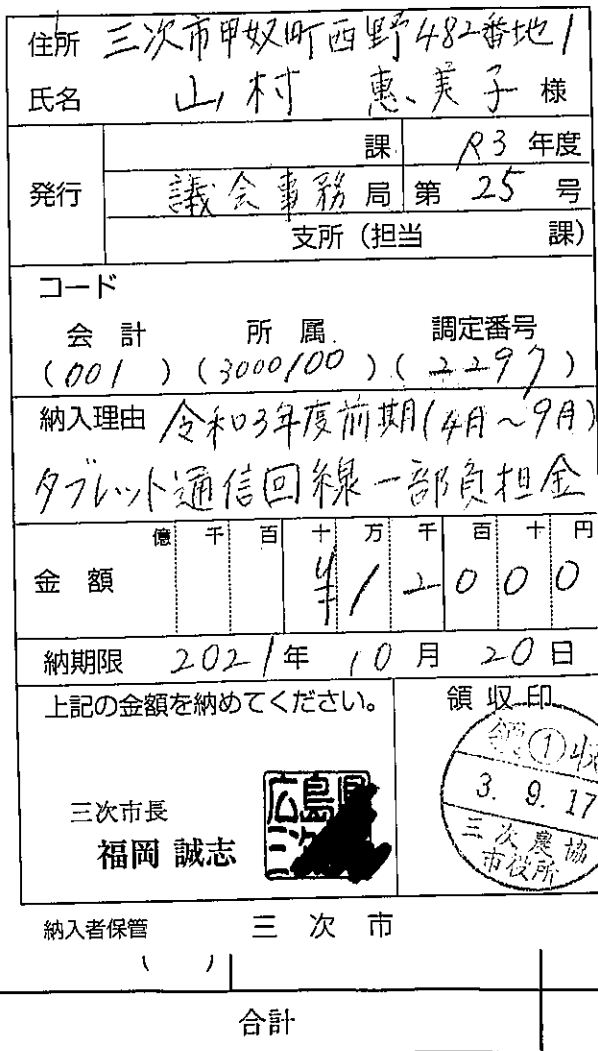 住所 三次市甲奴町西野482番地1
氏名 山村 惠美子 様
課 R3 年度
発行 議会事務 局 第 25 号
支所(担当 課)
コード
会計 所属 調定番号
(001) (3000100) (2297)
納入理由 令和3年度前期(4月~9月)
タブレット通信回線一部負担金
億 千 百 十 万 千 百 十 円
金額 ¥12000
納期限 2021年 10月 20日
上記の金額を納めてください。
領収印
領①収
3. 9. 17
三次農協
市役所
三次市長
福岡 誠志
広島県
三次
納入者保管 三次市
( )
合計